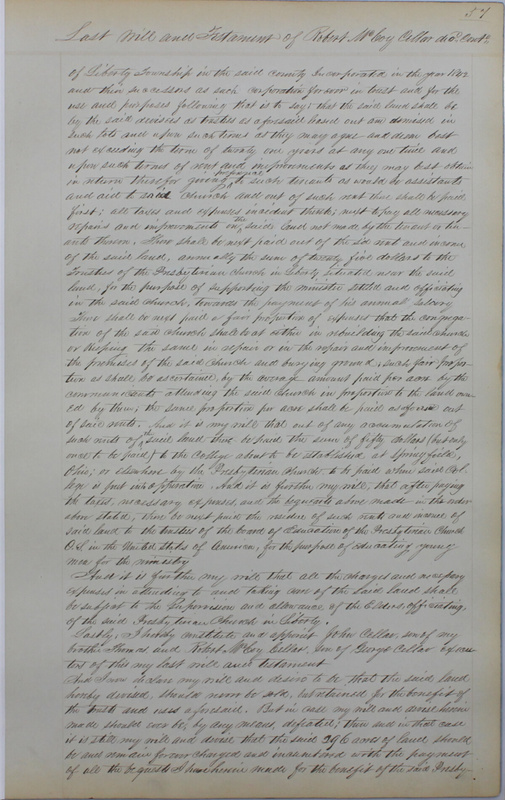 57
Last Will and Testament of Robert McCoy Cellar dec.
of Liberty Township in the said County Incorporated in the year
and their successors as such corporation forever in trust and for the
use and purposes following that is to say; that the said land shall be
by the said devisees as trustees as aforesaid leased out and demised in
such lots and upon such terms as they may agree and deem best
not exceeding the term of twenty one years at any one time and
upon such terms of rent and improvements as they may best obtain
in return therefor giving preference to such tenants as would be assistants
and aid to said Church and out of such rent there shall be paid
first; all taxes and expenses incident thereto; next to pay all necessary
repairs and improvements on the said land not made by the tenant or ten-
ants thereon. There shall be next paid out of the sd rents and income
of the said land, annually the sum of twenty five dollars to the
Trustees of the Presbyterian Church in Liberty situated near the said
land, for the purpose of supporting the minister settled and officiating
in the said Church, towards the payment of his annual salary
There shall be next paid a fair proportion of expenses that the congrega-
tion of the said Church shall be at either in rebuilding the said Church
or keeping the same in repair or in the repair and improvement of
the premises of the said Church and burying ground, such fair propor-
tion as shall be ascertained, by the average amount paid per acre by the
attending the said Church in proportion to the land own-
ed by them; the same proportion per acre shall be paid as aforesaid out
of said rents. And it is my will that out of any accumulation of
such rents of sd said land there be paid the sum of fifty dollars (but only
once to be paid) to the College about to be established at Springfield,
Ohio; or elsewhere by the Presbyterian Church to be paid when said Col-
lege is put into operation. And it is further my will, that after paying
the taxes, necessary expenses, and the bequests above made in the order
above stated, there be next paid the residue of such rents and income of
said land to the trustees of the board of Education of the Presbyterian Church
O.S. in the United States of America, for the purpose of educating young
men for the ministry
And it is further my will that all the charges and necessary
expenses in attending to and taking care of the said land shall
be subject to the supervision and allowance of the Elders officiating
of the said Presbyterian Church in Liberty.
Lastly, I hereby constitute and appoint John Cellar, son of my
brother Thomas and Robert McCoy Cellar, son of George Cellar execu-
tors of this my last will and testament
And I now declare my will and desire to be that the said land
hereby devised, should never be sold, but retained for the benefit of
the trusts and uses aforesaid. But in case my will and devise herein
made should ever be, by any means, defeated, then and in that case
it is still my will and devise that the said 396 acres of land, should
be and remain forever charged and incumbered with the payment
of all the bequests I have herein made for the benefit of the said Presby-